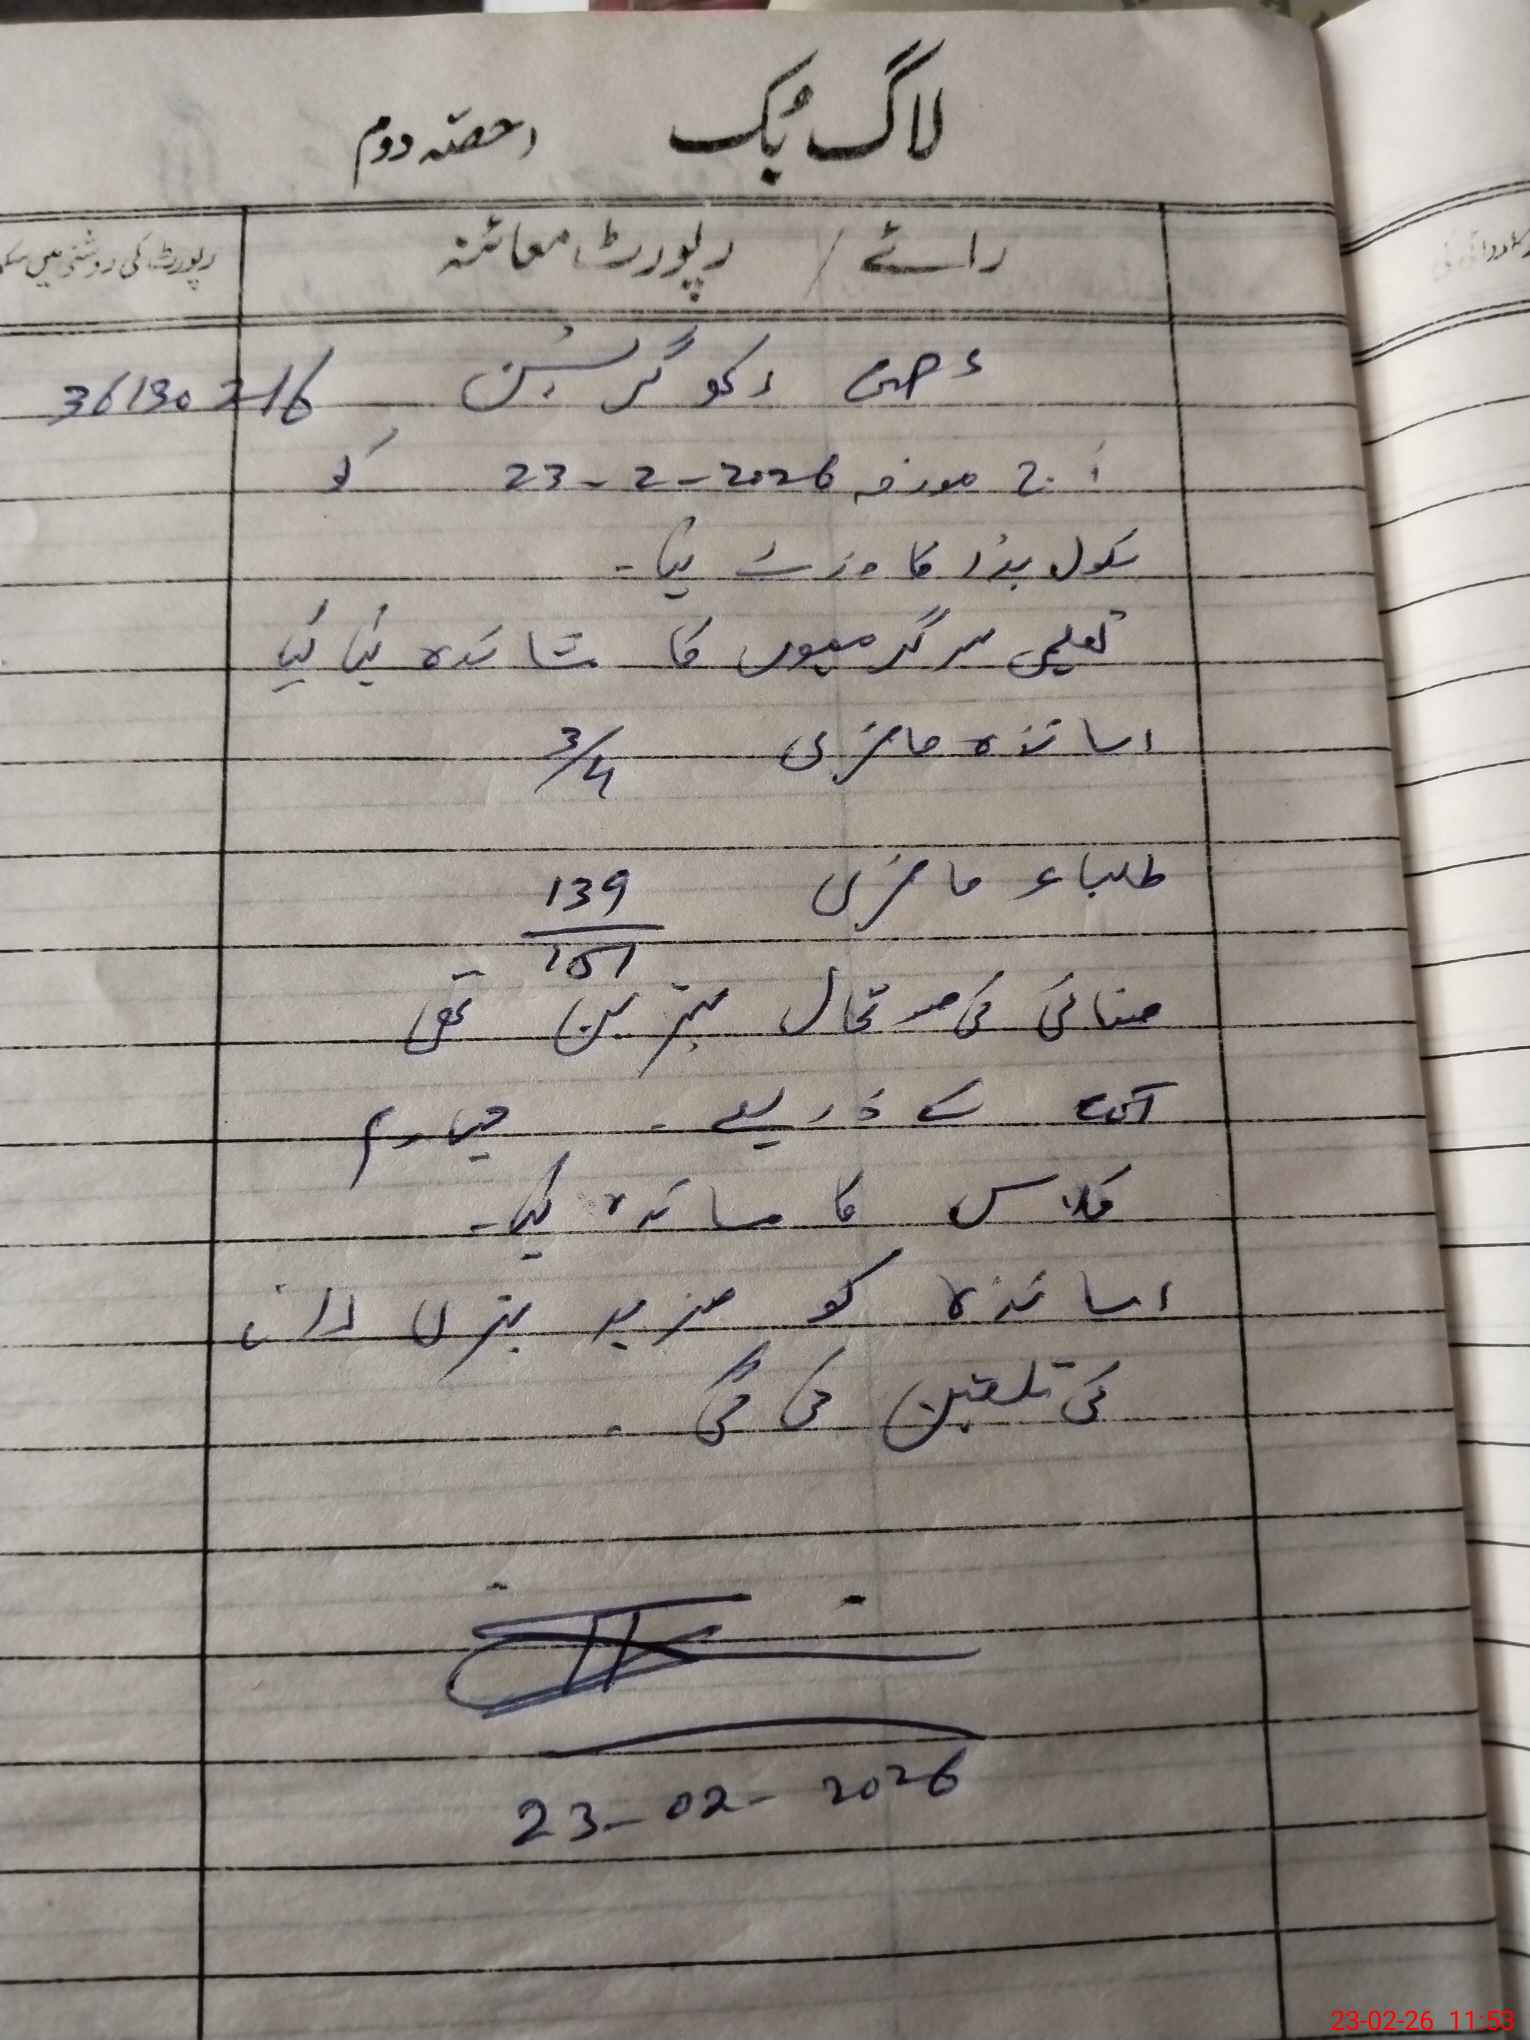 لاگ بُک حصّہ دوم
رائے / رپورٹ معائنہ
رپورٹ کی روشنی میں
36130216
آج مورخہ 2026-2-23 کو
سکول ہذا کا وزٹ کیا۔
تعلیمی سرگرمیوں کا مشاہدہ کیا گیا
اساتذہ حاضری 3/4
طلباء حاضری 139/151
صفائی کی صورتحال بہترین تھی
کے ذریعے۔ چہارم
کلاس کا مشاہدہ کیا۔
اساتذہ کو مزید بہتری لانے
کی تلقین کی گئی۔
23-02-2026
23-02-26 11:53